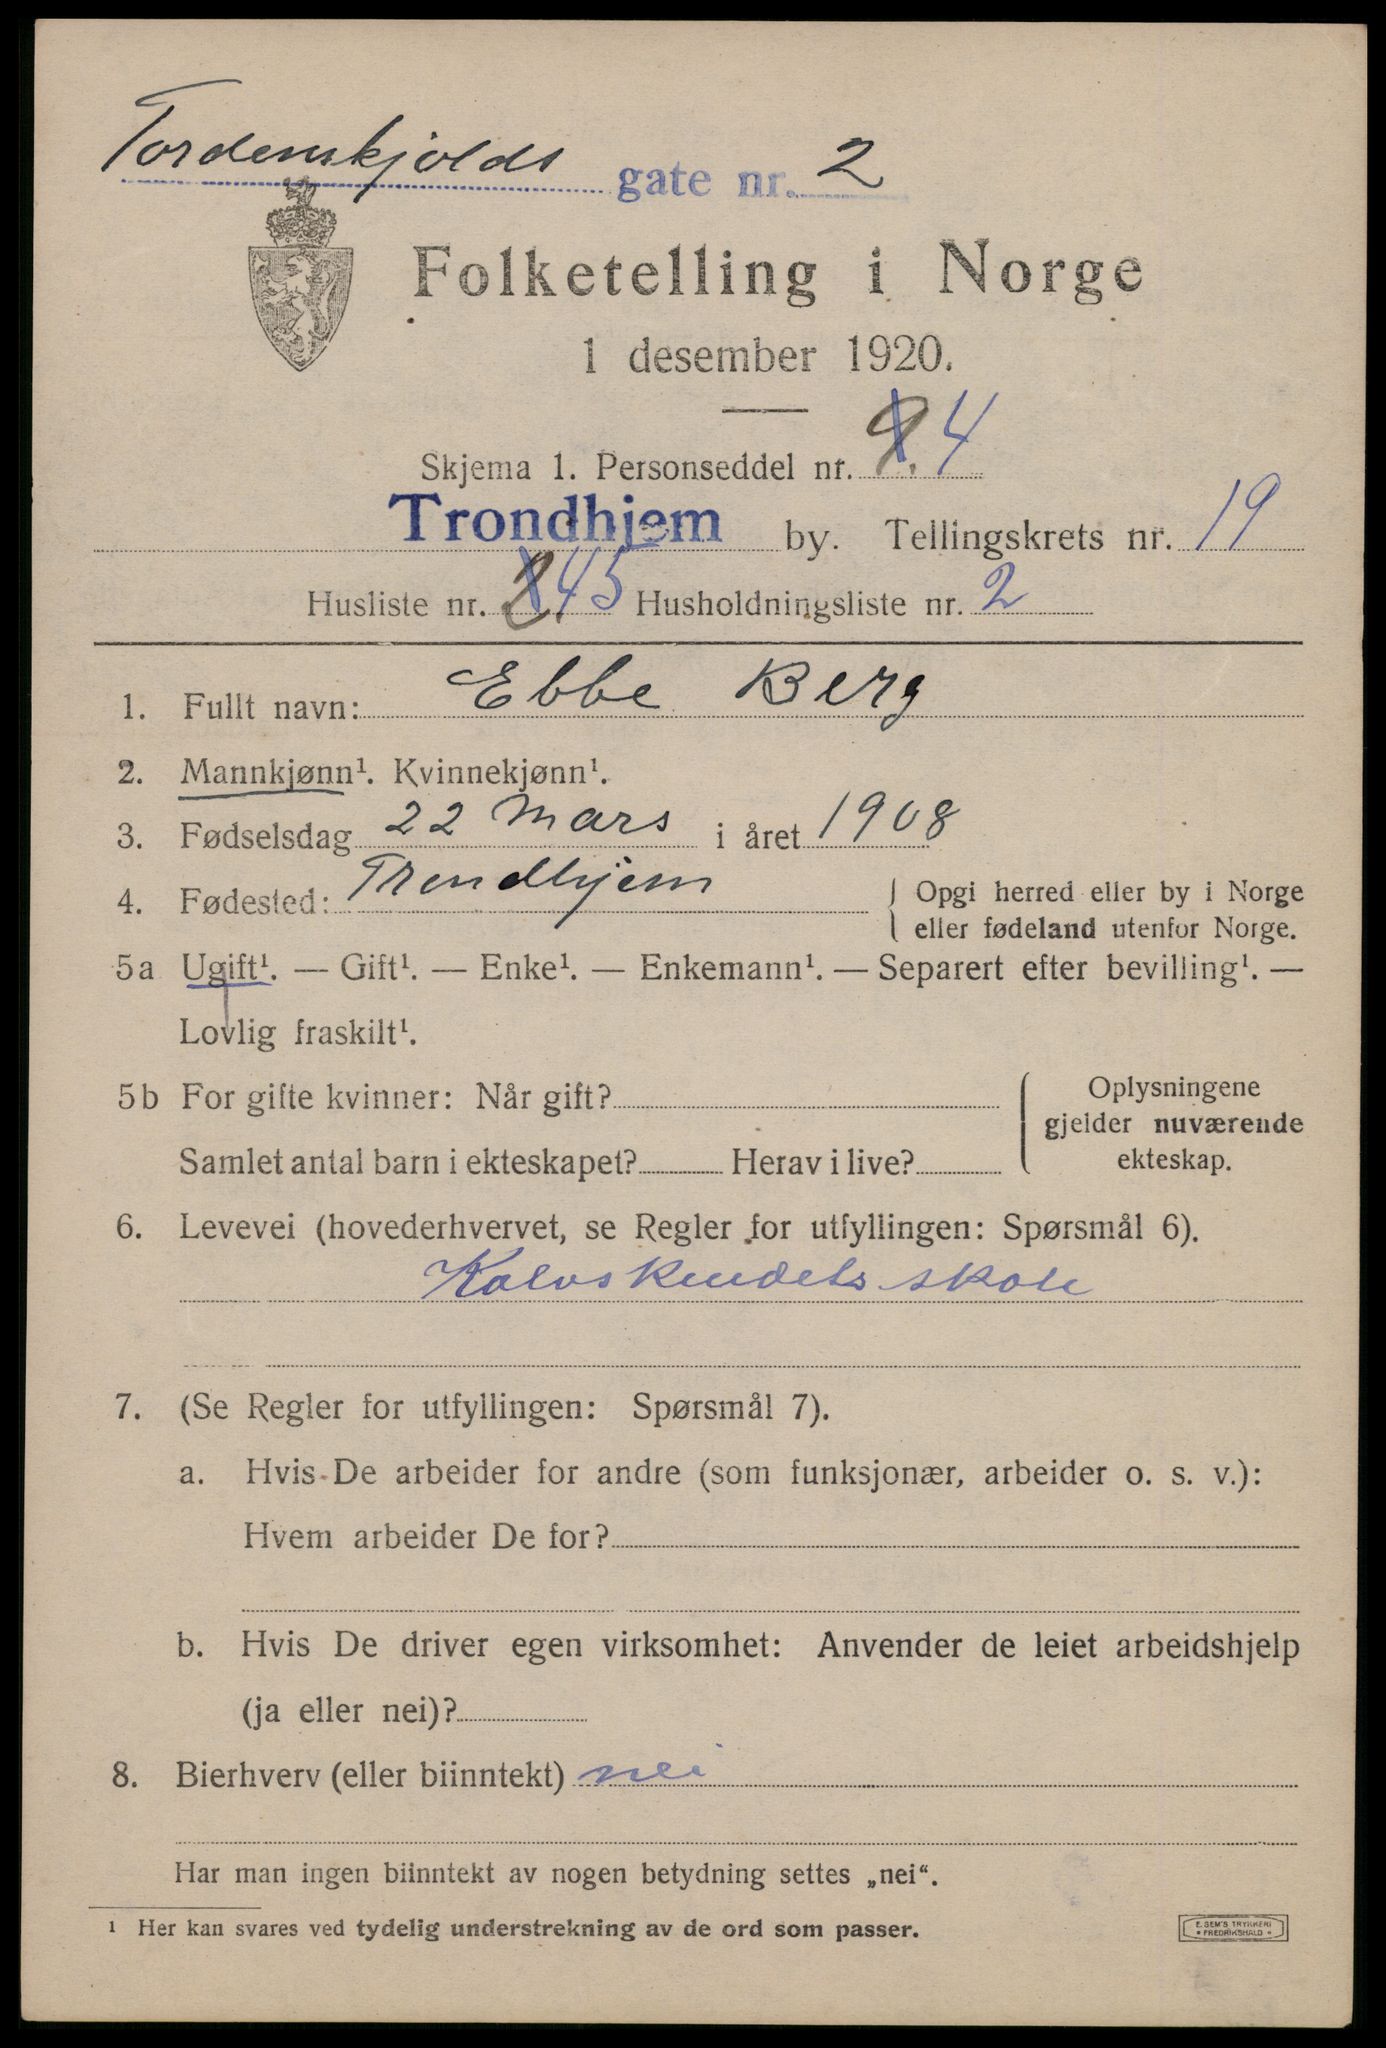 Tordenskjolds gate nr. 2
Folketelling i Norge
1 desember 1920.
Skjema 1. Personseddel nr. 4
Trondhjem by. Tellingskrets nr. 19
Husliste nr. 2. 45 Husholdningsliste nr. 2
1. Fullt navn: Ebbe Berg
2. Mannkjønn¹. Kvinnekjønn¹.
3. Fødselsdag 22 Mars i året 1908
4. Fødested: Trondhjem { Opgi herred eller by i Norge
eller fødeland utenfor Norge.
5a Ugift¹. — Gift¹. — Enke¹. — Enkemann¹. — Separert efter bevilling¹. —
Lovlig fraskilt¹.
5b For gifte kvinner: Når gift? { Oplysningene
gjelder nuværende
Samlet antal barn i ekteskapet? Herav i live? ekteskap.
6. Levevei (hovederhvervet, se Regler for utfyllingen: Spørsmål 6).
Kalvskindets skole
7. (Se Regler for utfyllingen: Spørsmål 7).
a. Hvis De arbeider for andre (som funksjonær, arbeider o. s. v.):
Hvem arbeider De for?
b. Hvis De driver egen virksomhet: Anvender de leiet arbeidshjelp
(ja eller nei)?
8. Bierhverv (eller biinntekt) nei
Har man ingen biinntekt av nogen betydning settes „nei“.
¹ Her kan svares ved tydelig understrekning av de ord som passer.
E. SEM'S TRYKKERI
FREDRIKSHALD